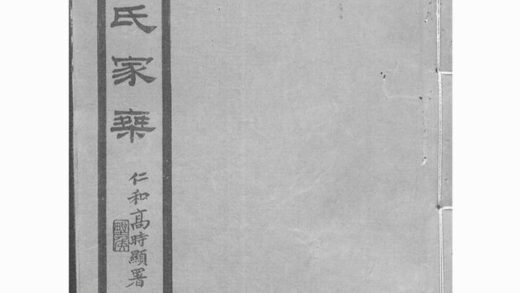 氏家乘
仁和高時顯署